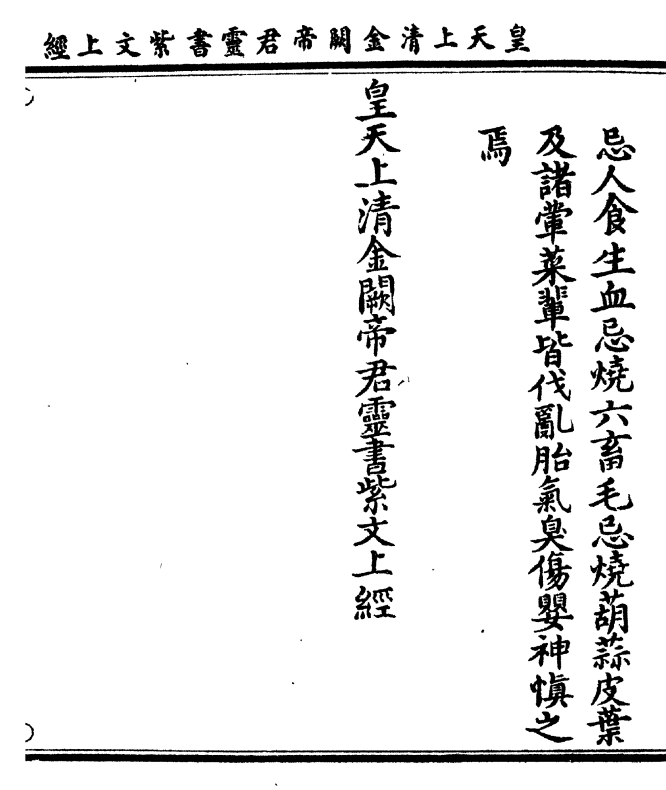 皇天上清金闕帝君靈書紫文上經
忌人食生血忌燒六畜毛忌燒葫蒜皮葉
及諸葷菜輩皆伐亂胎氣臭傷嬰神慎之
焉
皇天上清金闕帝君靈書紫文上經